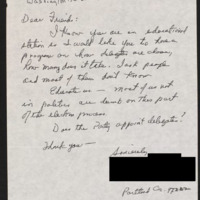 Dear Friends:
I know you are an educational
station so I would like you to have a
program on how delegates are chosen,
how many does it take. I ask people
and most of them don't know.
Educate us — most of us not
in politics are dumb on this part
of the election process.
Does the Party appoint delegates?
Thank you —
Sincerely,
Portland Or. 97222